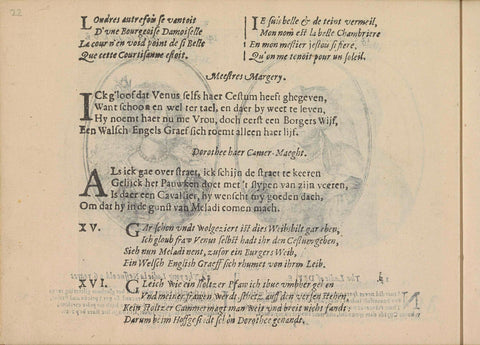 22
Londres autresfois se vantoit
D'vne Bourgeoise Damoiselle
La cour n'en void point de si Belle
Que cette Courtisanne estoit.
Ie suis belle & de teint vermeil,
Mon nom est la belle Chambriere
En mon mestier j'estou si fiere,
Qu'on me tenoit pour un soleil.
Meestres Margery.
ICk g'loof dat Venus selfs haer Cestum heeft ghegeven,
Want schoon en wel ter tael, en daer by weet te leven,
Hy noemt haer nu me Vrou, doch eerst een Borgers Wijf,
Een Walsch Engels Graef sich roemt alleen haer lijf.
Dorothee haer Camer-Maeght.
ALs ick gae over straet, ick schijn de straet te keeren
Gelijck het Pauwken doet met 't slypen van zijn veeren,
Is daer een Cavallier, hy wenscht my goeden dach,
Om dat hy in de gunst van Meladi comen mach.
XV. GAr schon vndt wolgeziert ist dies Weibsbilt gar eben,
Ich gloub fraw Venus selbst hadt ihr den Cestum geben,
Sieh nun Meladi nent, zufor ein Burgers Weib,
Ein Welsch English Graeff sich rhumet von ihrem Leib.
XVI. GLeich wie ein stoltzer Pfaw ich thue vmbher gehn
Vnd meiner frauwen werdt stheltz auff den versen stehen,
Kein stoltzer Cammermagt man weit vnd breit nicht fandt:
Darum beim Hoffgesindt schön Dorothee genandt.